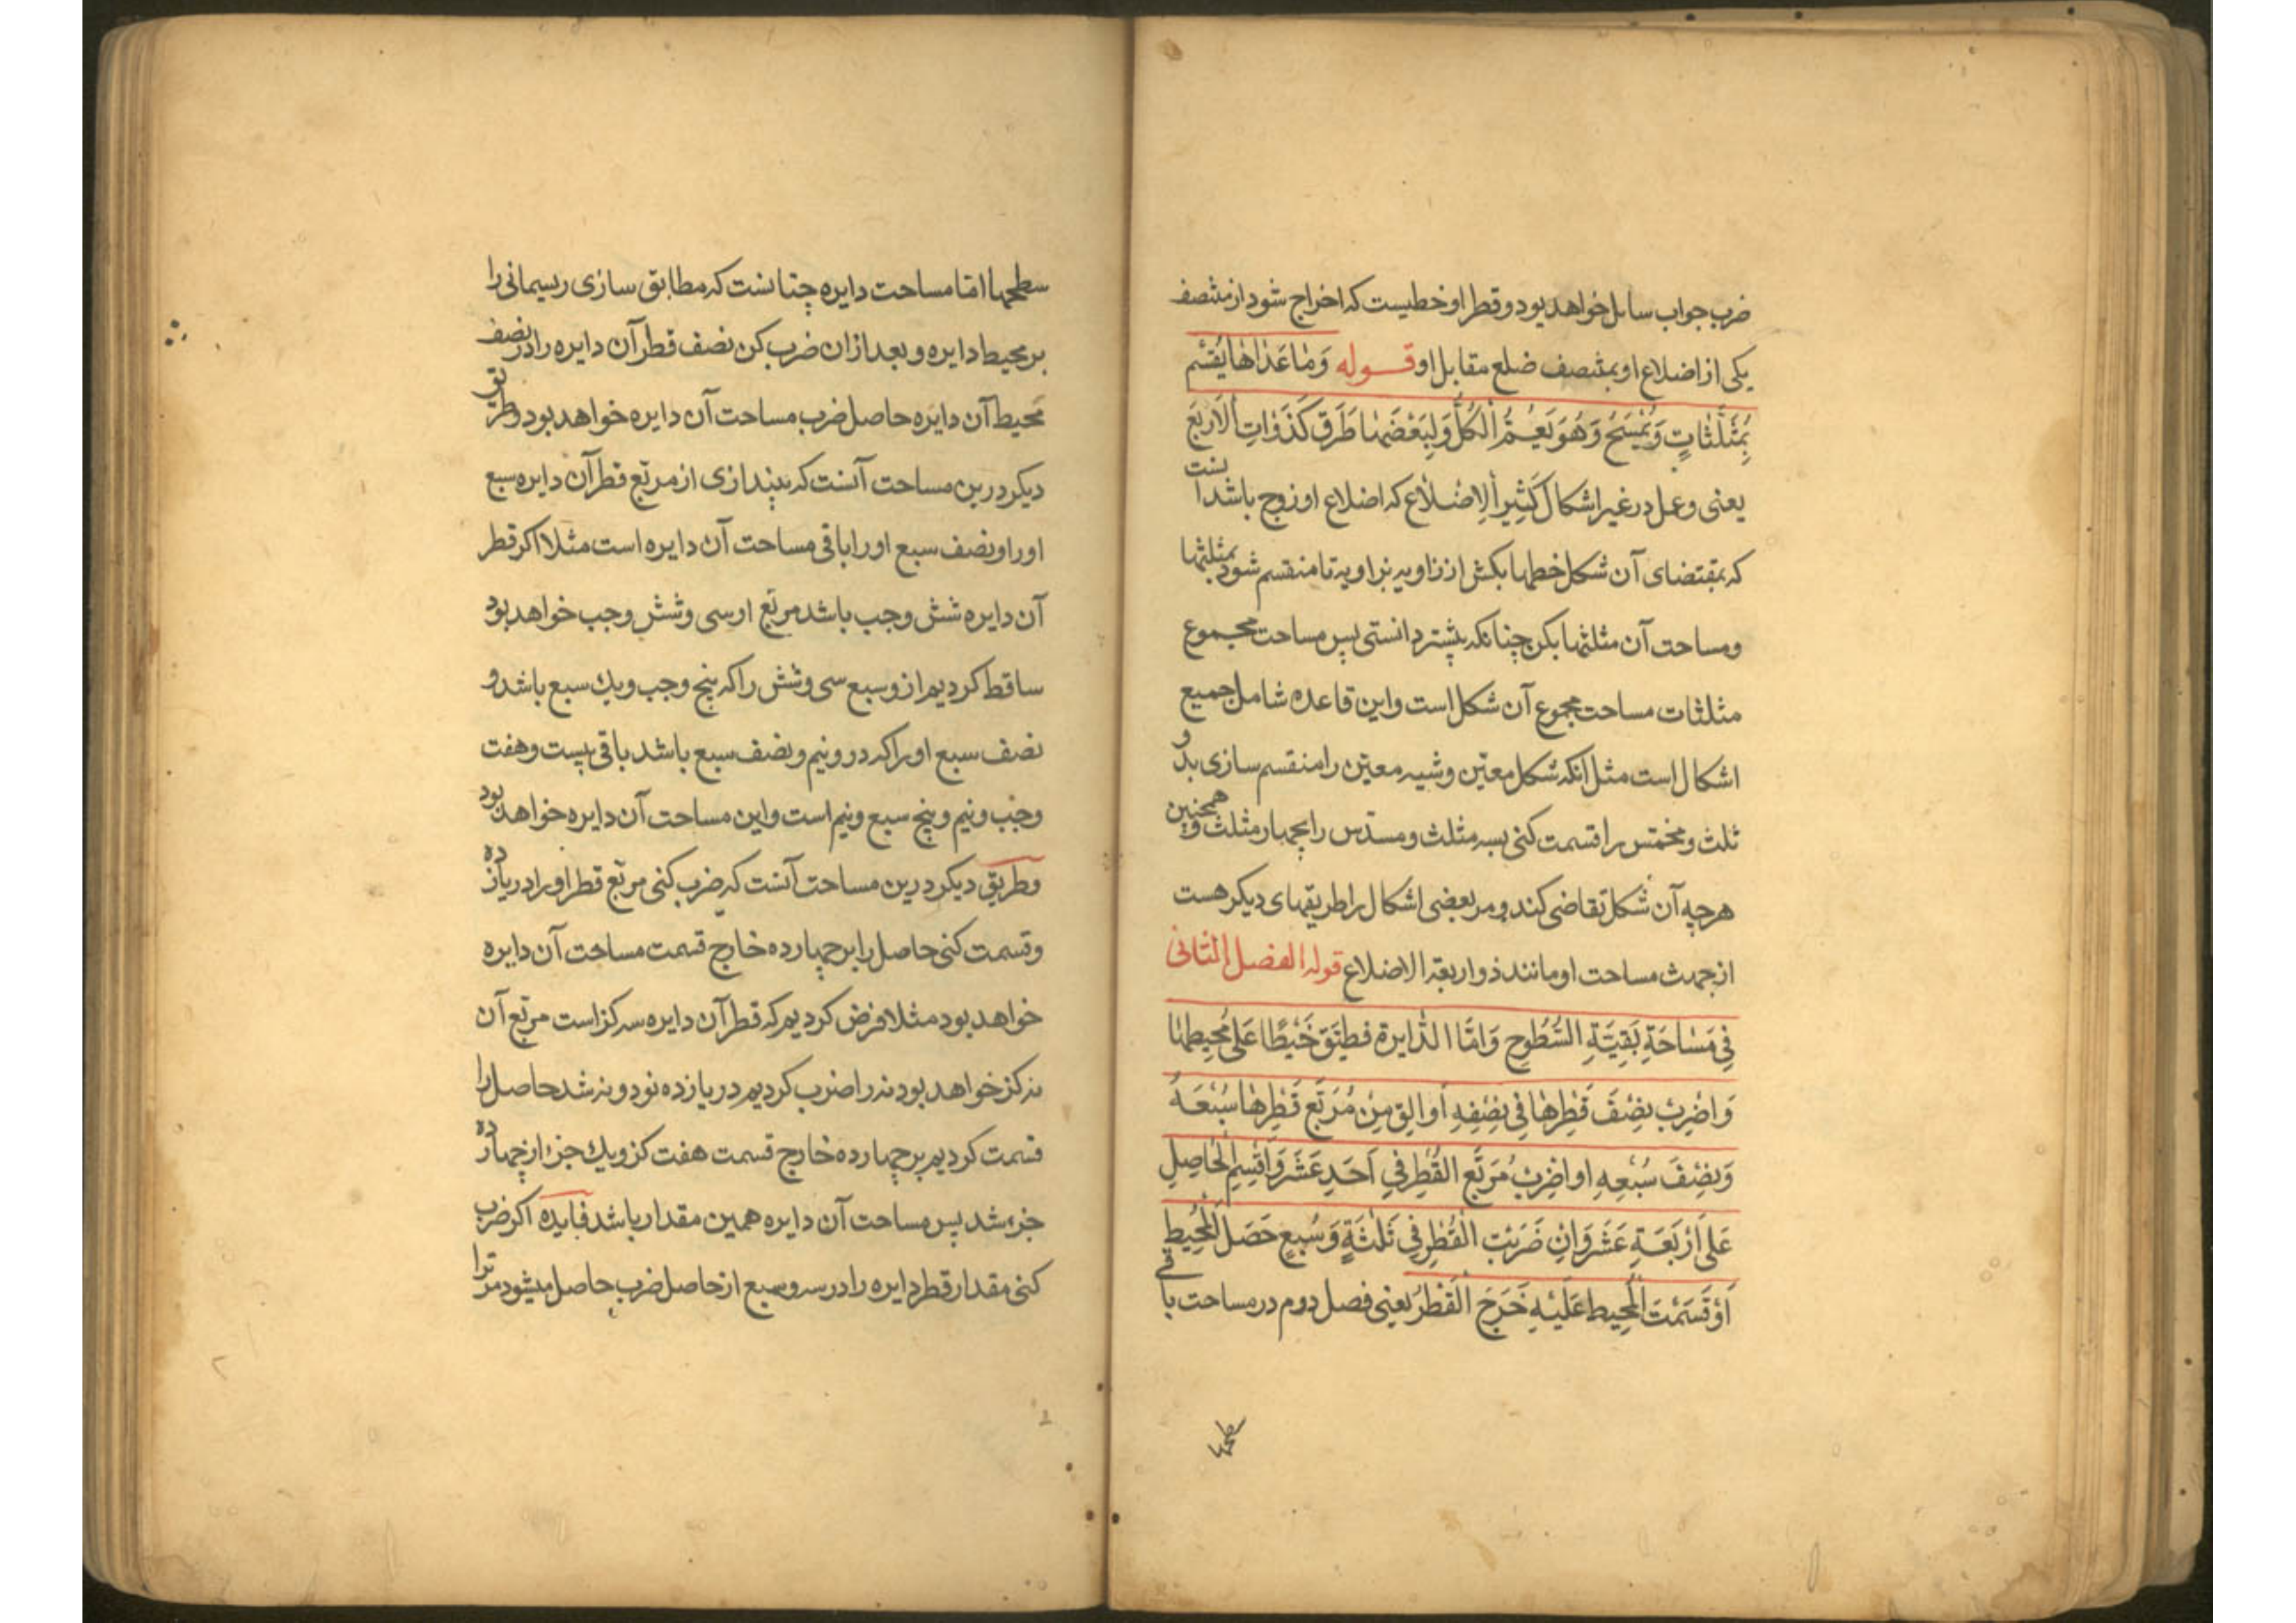 ضرب جواب سایل خواهد بود و قطر او خطیست که اخراج شود از منتصف
یکی از اضلاع او بمنتصف ضلع مقابل او قوله وَمٰا عَدٰاهٰا یُقَسَّم
بِمُثَلَّثٰاتٍ وَیُمْسَحُ وَهُوَ یَعُمُّ الْکُلَّ وَلِبَعْضِهٰا طُرُق کَذَوٰاتِ الْاَرْبَع
یعنی وعمل در غیر اشکال کَثیرُ الاِضلاع که اضلاع او زوج باشد آنست
که بمقتضای آن شکل خطها بکش از زاویه بزاویه تا منقسم شود بمثلثها
ومساحت آن مثلثها بکن چنانکه پیشتر دانستی پس مساحت مجموع
مثلثات مساحت مجموع آن شکل است واین قاعده شامل جمیع
اشکال است مثل آنکه شکل معیّن وشبیه معیّن را منقسم سازی بدو
ثلث ومخمّس را قسمت کنی بسه مثلث ومسدّس را بچهار مثلث و همچنین
هرچه آن شکل تقاضی کند ومر بعضی اشکال را طریقهای دیکر هست
از جهت مساحت او مانند ذو اربعة الاضلاع قوله الفصل الثانی
فِی مَسٰاحَةِ بَقِیَّةِ السُّطُوحِ وَامَّا الدّٰایرة فطبّق خَیْطًا عَلٰی مُحِیطِهٰا
وَاضْرِبْ نِصْفَ قُطْرِهٰا فِی نِصْفِهِ اَو الق مِنْ مُرَبَّعِ قُطْرِهٰا سُبْعَهُ
وَنِصْفَ سُبْعِهِ او اضْرِبْ مُرَبَّعَ القُطْرِ فِی اَحَدِ عَشَرَ وَاقْسِمِ الْحٰاصِلِ
عَلٰی اَرْبَعَةِ عَشَرَ وَاِنْ ضَرَبْتَ الْقُطْرَ فِی ثَلٰثَةٍ وَسُبْعٍ حَصَلَ الْمُحِیطِ
اَوْ قَسَمْتَ الْمُحِیطَ عَلَیْهِ خَرَجَ الْقُطْرُ یعنی فصل دوم در مساحت باقی
سطحها امّا مساحت دایره چنانست که مطابق سازی ریسمانی را
بر محیط دایره و بعد ازان ضرب کن نصف قطر آن دایره را در نصف
محیط آن دایره حاصل ضرب مساحت آن دایره خواهد بود وطریق
دیکر درین مساحت آنست که بیندازی از مربّع قطر آن دایره سبع
اورا ونصف سبع اورا باقی مساحت آن دایره است مثلا اکر قطر
آن دایره شش وجب باشد مربّع او سی وشش وجب خواهد بود
ساقط کردیم ازو سبع سی وشش را که پنج وجب ویك سبع باشد و
نصف سبع اورا که دو ونیم ونصف سبع باشد باقی بیست وهفت
وجب ونیم وپنج سبع ونیم است واین مساحت آن دایره خواهد بود
وطریق دیکر درین مساحت آنست که ضرب کنی مربّع قطر اورا در یازده
وقسمت کنی حاصل را بر چهارده خارج قسمت مساحت آن دایره
خواهد بود مثلا فرض کردیم که قطر آن دایره سه کز است مربّع آن
نه کز خواهد بود نه را ضرب کردیم در یازده نود ونه شد حاصل را
قسمت کردیم بر چهارده خارج قسمت هفت کز ویك جزء از چهارده
جزء شد پس مساحت آن دایره همین مقدار باشد فایده اکر ضرب
کنی مقدار قطر دایره را در سه وسبع از حاصل ضرب حاصل میشود مر ترا